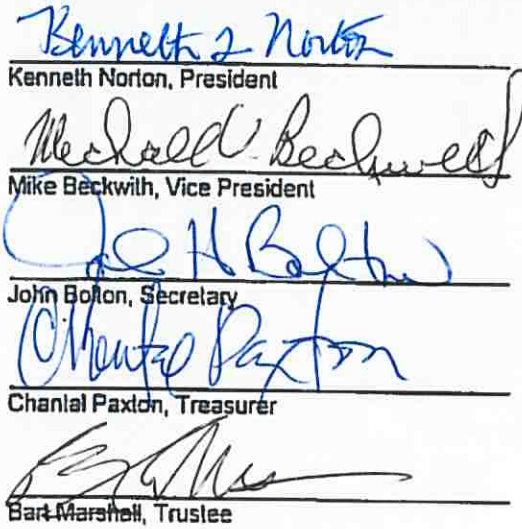 Kenneth L Norton
Kenneth Norton, President
Michael V. Beckwith
Mike Beckwith, Vice President
John H Bolton
John Bolton, Secretary
Chantal Paxton
Chantal Paxton, Treasurer
Bart Marshall, Trustee